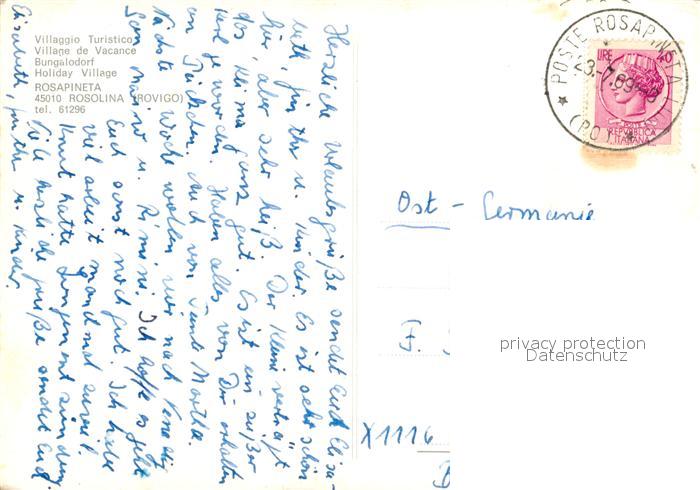 Villaggio Turistico
Village de Vacance
Bungalodorf
Holiday Village
ROSAPINETA
45010 ROSOLINA (ROVIGO)
tel. 61296
Herzliche Urlaubsgrüße sendet Euch Elisa-
beth, Günther u. Kinder. Es ist sehr schön
hier, aber sehr heiß. Der Kleine verträgt
das Klima ganz gut. Es ist ein süßer
Kerl geworden. Haben alles von Dir erhalten
an Päckchen. Auch von Tante Martha.
Nächste Woche wollen wir nach Venedig
San Marino u. Rimini. Ich hoffe es geht
Euch sonst noch gut. Ich habe
viel Arbeit manchmal zuviel.
Knut hatte Lungenentzündung
Viele herzliche Grüße sendet Euch
Elisabeth, Günther u. Kinder.
POSTE ROSAPINETA
23.-7.69
(RO)
LIRE 40
POSTE
REPVBBLICA
ITALIANA
Ost - Germania
F.
X1116
privacy protection
Datenschutz